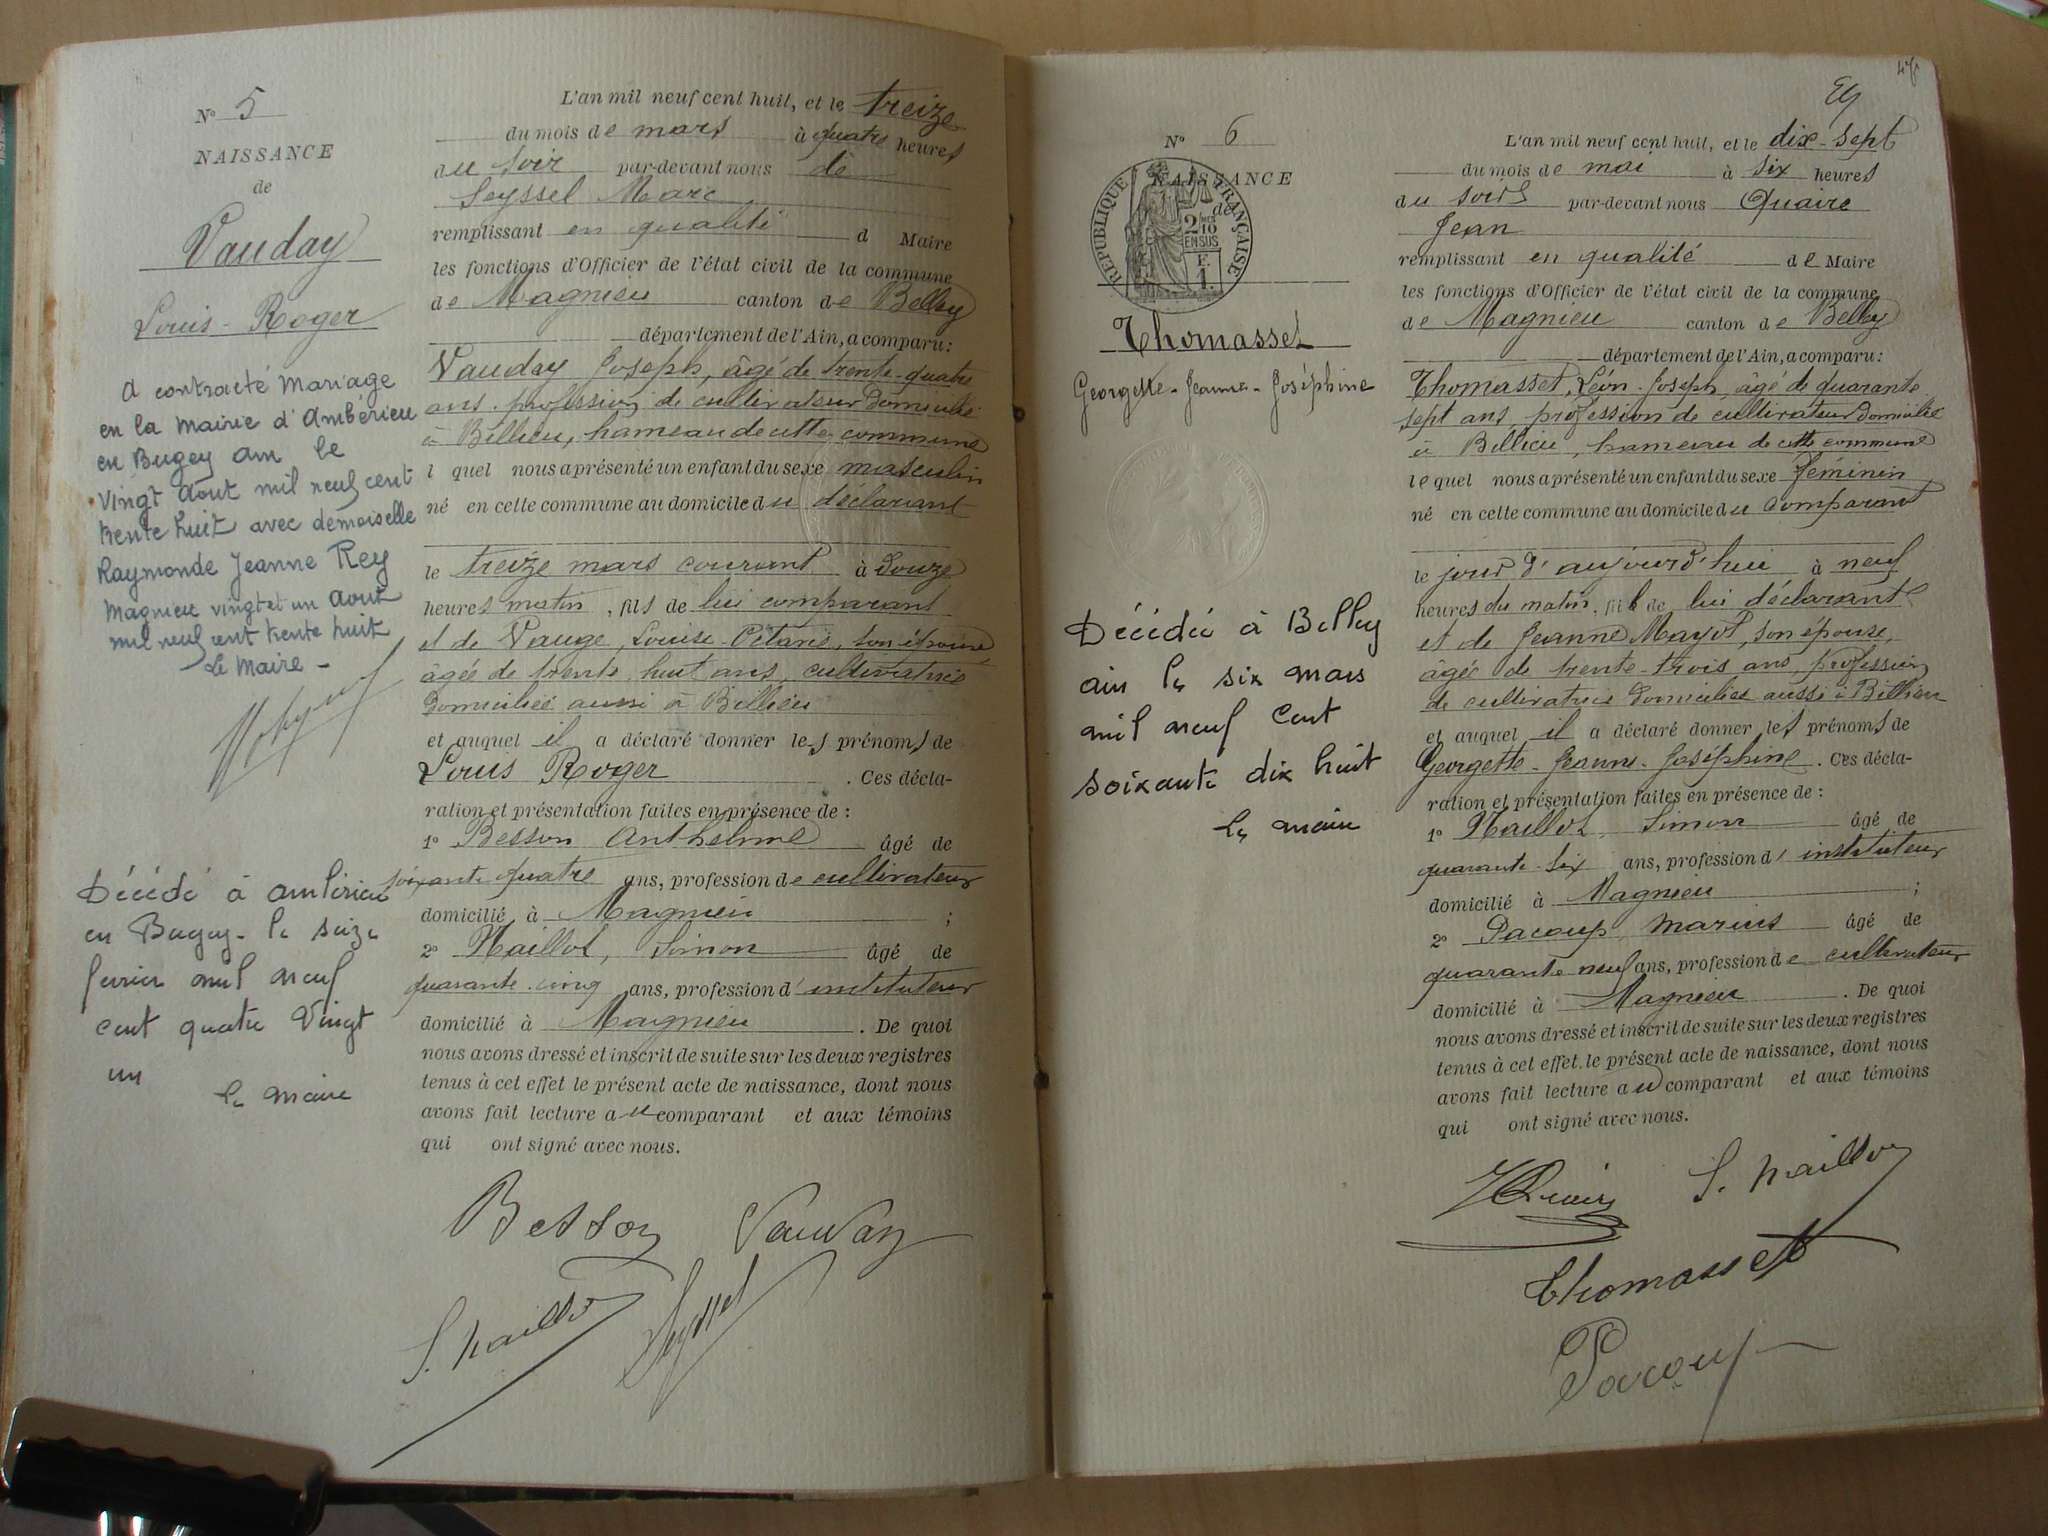 N° 5
NAISSANCE
de
Vauday
Louis - Roger
A contracté Mariage
en la Mairie d'Ambérieu
en Bugey ain le
Vingt Aout mil neuf cent
trente huit avec demoiselle
Raymonde Jeanne Rey
Magnieu vingt et un Aout
mil neuf cent trente huit
Le Maire -
Décédé à Ambérieu
en Bugey - le seize
février mil neuf
cent quatre Vingt
un
le maire
L'an mil neuf cent huit, et le treize
du mois de mars à quatre heures
du soir par-devant nous de
Seyssel Marc
remplissant en qualité d Maire
les fonctions d'Officier de l'état civil de la commune
de Magnieu canton de Belley
département de l'Ain, a comparu:
Vauday Joseph, âgé de trente-quatre
ans, profession de cultivateur domicilié
à Billieu, hameau de cette commune
l quel nous a présenté un enfant du sexe masculin
né en cette commune au domicile du déclarant
le treize mars courant à douze
heures matin, fils de lui comparant
et de Vauge, Louise son épouse
âgée de trente huit ans, cultivatrice
domiciliée aussi à Billieu
et auquel il a déclaré donner les prénoms de
Louis Roger . Ces décla-
ration et présentation faites en présence de :
1° Besson Anthelme âgé de
soixante quatre ans, profession de cultivateur
domicilié à Magnieu ;
2° Naillot, Simon âgé de
quarante-cinq ans, profession d'instituteur
domicilié à Magnieu . De quoi
nous avons dressé et inscrit de suite sur les deux registres
tenus à cet effet le présent acte de naissance, dont nous
avons fait lecture au comparant et aux témoins
qui ont signé avec nous.
Besson Vauday
S. Naillot Seyssel
N° 6
NAISSANCE
de
RÉPUBLIQUE FRANÇAISE
2/10
EN SUS
F.
1.
Thomasset
Georgette - Jeanne - Joséphine
Décédée à Belley
ain le six mars
mil neuf cent
soixante dix huit
le maire
L'an mil neuf cent huit, et le dix-sept
du mois de mai à six heures
du soir par-devant nous Quaire
Jean
remplissant en qualité de Maire
les fonctions d'Officier de l'état civil de la commune
de Magnieu canton de Belley
département de l'Ain, a comparu:
Thomasset, Léon-Joseph, âgé de quarante
sept ans profession de cultivateur domicilié
à Billieu, hameau de cette commune
lequel nous a présenté un enfant du sexe féminin
né en cette commune au domicile du comparant
le jour d'aujourd'hui à neuf
heures du matin, fille de lui déclarant
et de Jeanne Mayot, son épouse,
âgée de trente-trois ans, profession
de cultivatrice domiciliée aussi à Billieu
et auquel il a déclaré donner les prénoms de
Georgette-Jeanne-Joséphine . Ces décla-
ration et présentation faites en présence de :
1° Naillot, Simon âgé de
quarante-six ans, profession d'instituteur
domicilié à Magnieu ;
2° Pacoup, Marius âgé de
quarante neuf ans, profession de cultivateur
domicilié à Magnieu . De quoi
nous avons dressé et inscrit de suite sur les deux registres
tenus à cet effet, le présent acte de naissance, dont nous
avons fait lecture au comparant et aux témoins
qui ont signé avec nous.
J Quaire S. Naillot
Thomasset
Pacoup